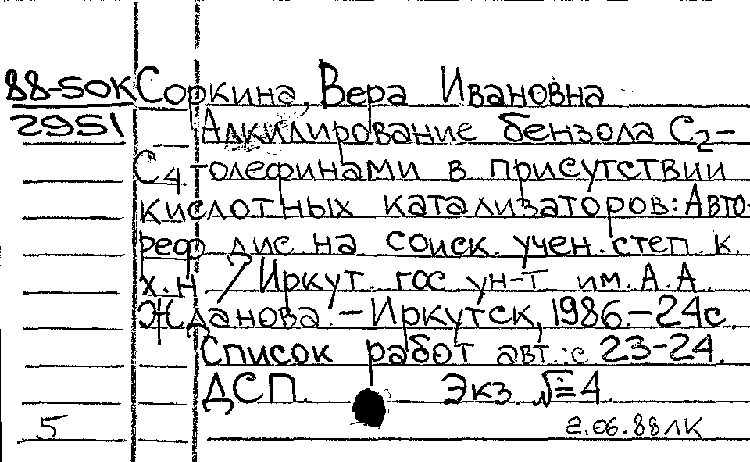 88-50К Соркина, Вера Ивановна
2951 Алкилирование бензола С2-
С4-олефинами в присутствии
кислотных катализаторов: Авто-
реф дис. на соиск. учен. степ к.
х.н / Иркут гос ун-т им. А.А.
Жданова. – Иркутск, 1986. – 24с.
Список работ авт.: с 23-24.
ДСП. Экз. №4.
5 2.06.88ЛК